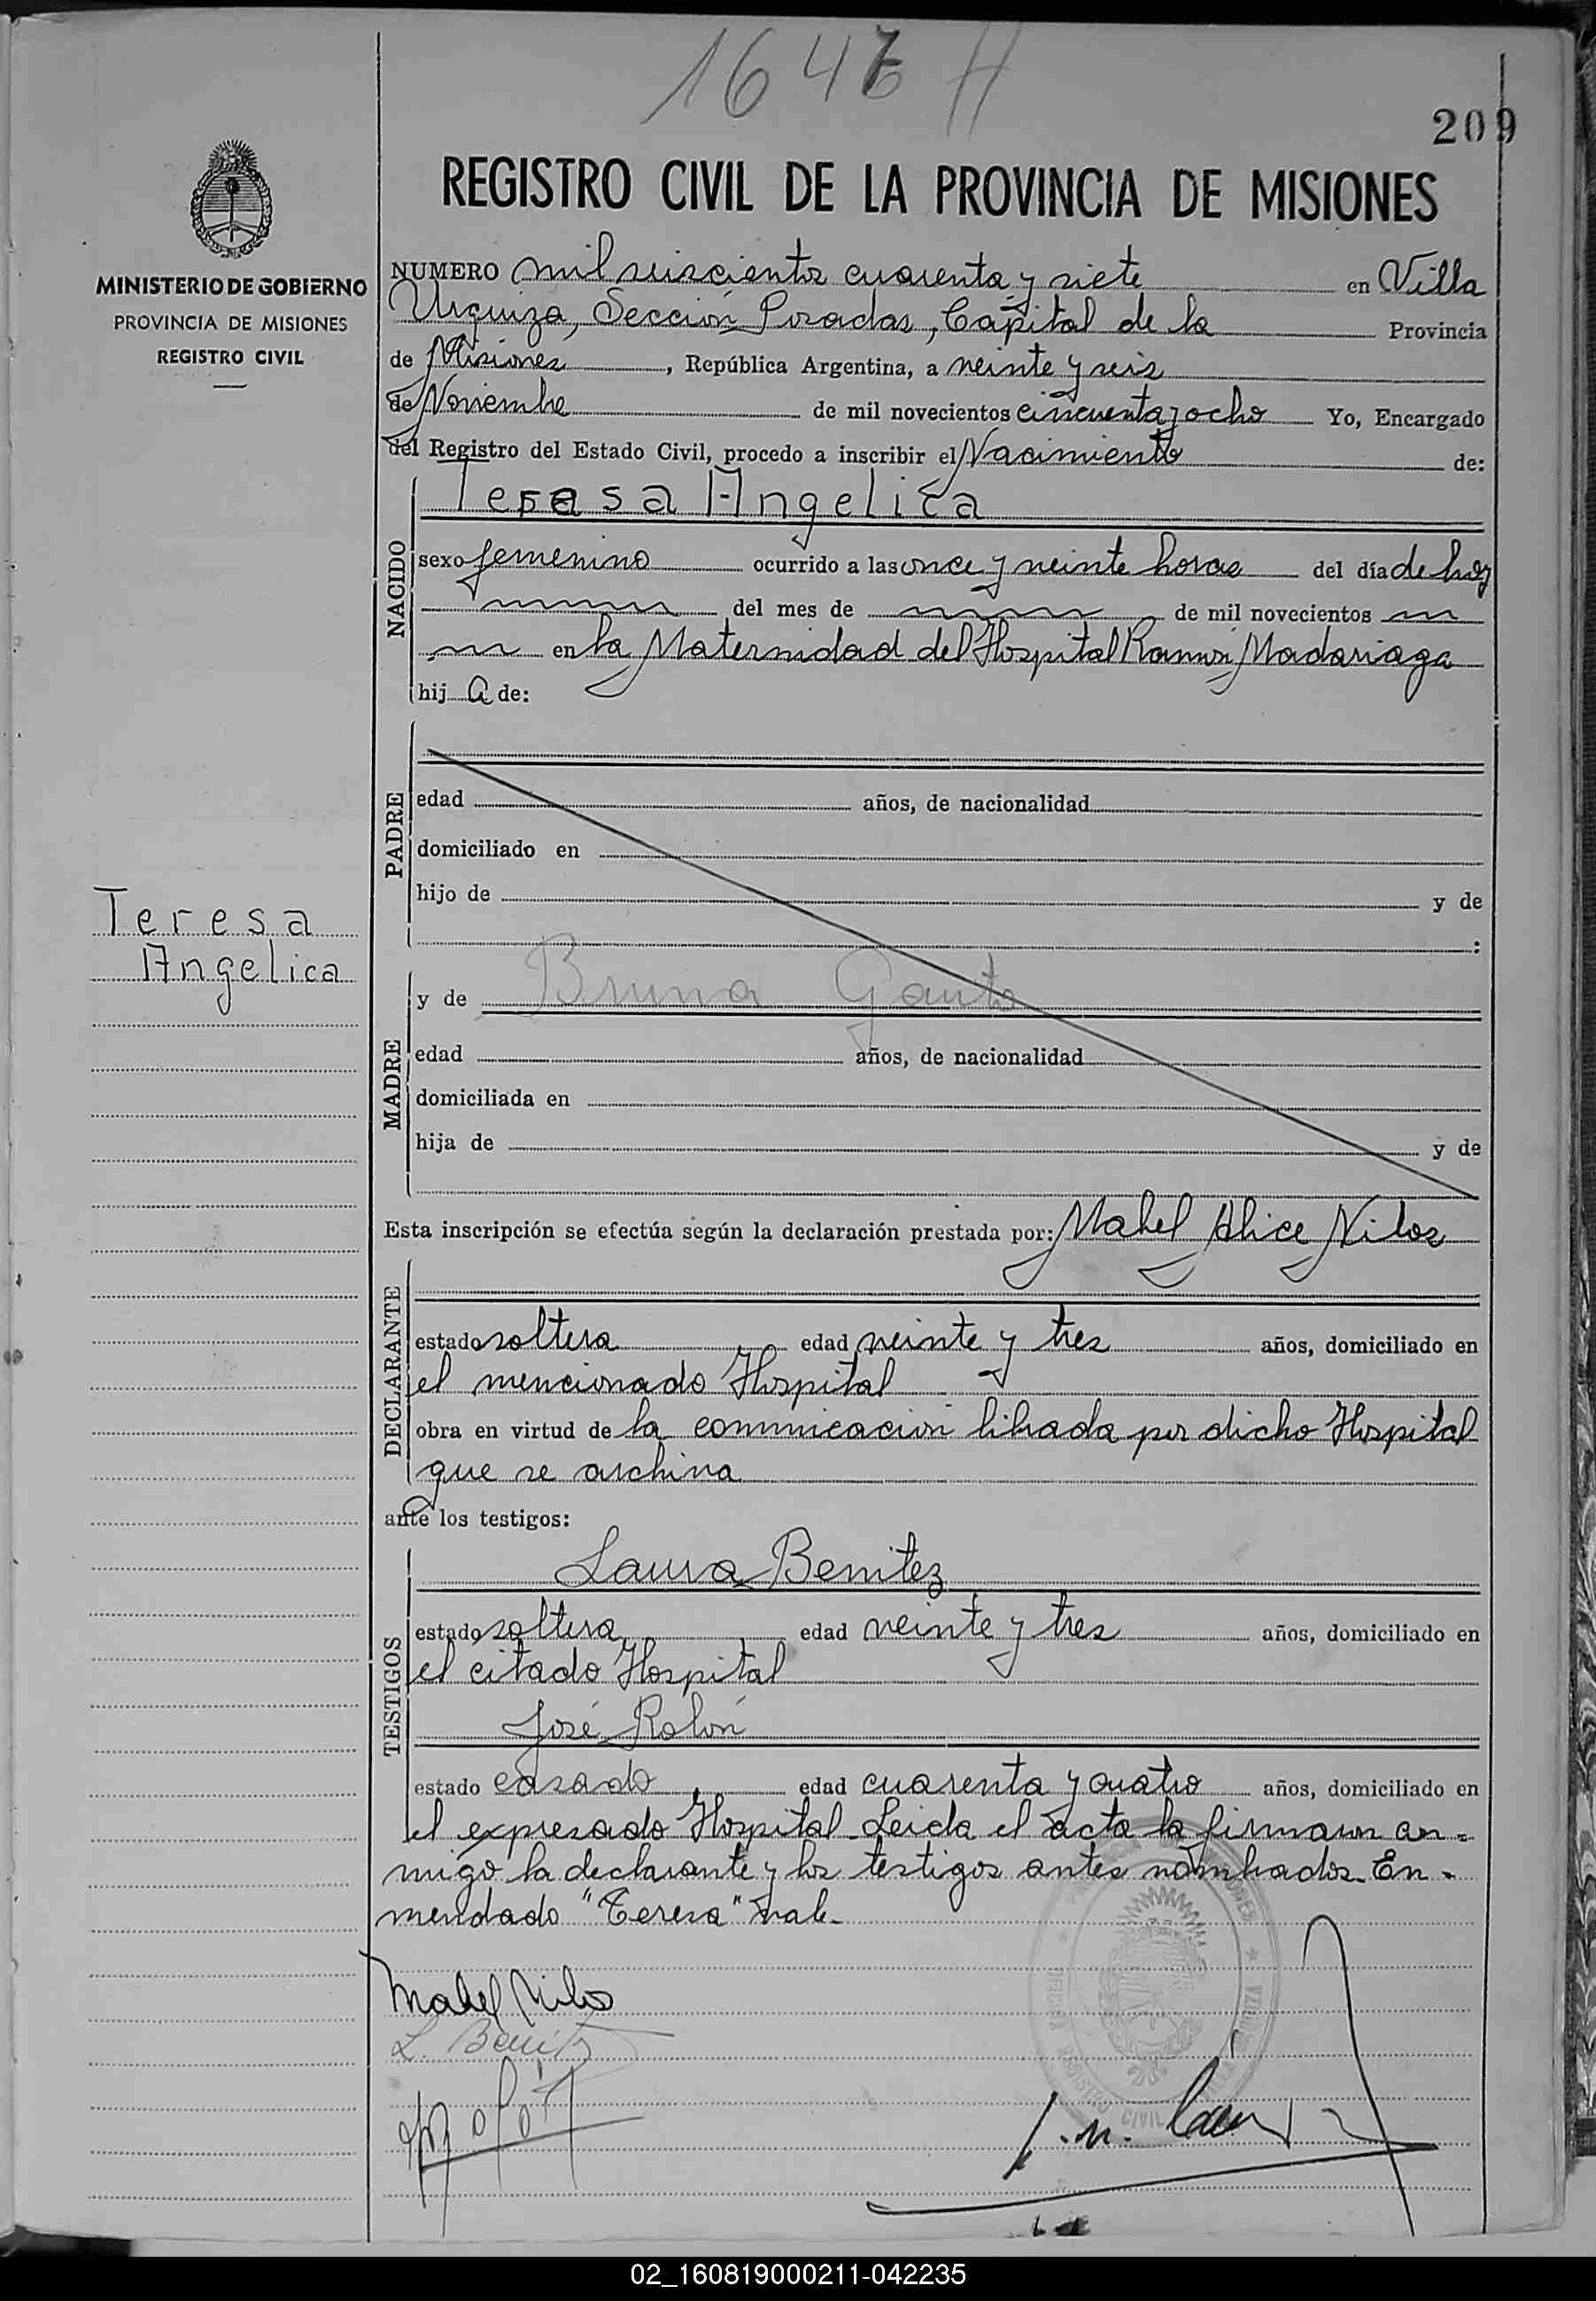 1647 H
209
REGISTRO CIVIL DE LA PROVINCIA DE MISIONES
MINISTERIO DE GOBIERNO
PROVINCIA DE MISIONES
REGISTRO CIVIL
NUMERO mil seiscientos cuarenta y siete en Villa
Urquiza, Sección Posadas, Capital de la Provincia
de Misiones, República Argentina, a veinte y seis
de Noviembre de mil novecientos cincuenta y ocho Yo, Encargado
del Registro del Estado Civil, procedo a inscribir el Nacimiento de:
Teresa Angelica
NACIDO
sexo femenino ocurrido a las once y veinte horas del día de hoy
del mes de de mil novecientos
en la Maternidad del Hospital Ramón Madariaga
hij a de:
PADRE
edad años, de nacionalidad
domiciliado en
hijo de y de
:
Teresa
Angelica
MADRE
y de Bruna Gauto
edad años, de nacionalidad
domiciliada en
hija de y de
Esta inscripción se efectúa según la declaración prestada por: Mabel Alice Nilos
DECLARANTE
estado soltera edad veinte y tres años, domiciliado en
el mencionado Hospital
obra en virtud de la comunicación librada por dicho Hospital
que se archiva
ante los testigos:
TESTIGOS
Laura Benitez
estado soltera edad veinte y tres años, domiciliado en
el citado Hospital
José Rolón
estado casado edad cuarenta y cuatro años, domiciliado en
el expresado Hospital. Leida el acta la firmaron con-
migo la declarante y los testigos antes nombrados. En-
mendado "Teresa" vale.
Mabel Nilos
L. Benitz
REGISTRO CIVIL
02_160819000211-042235